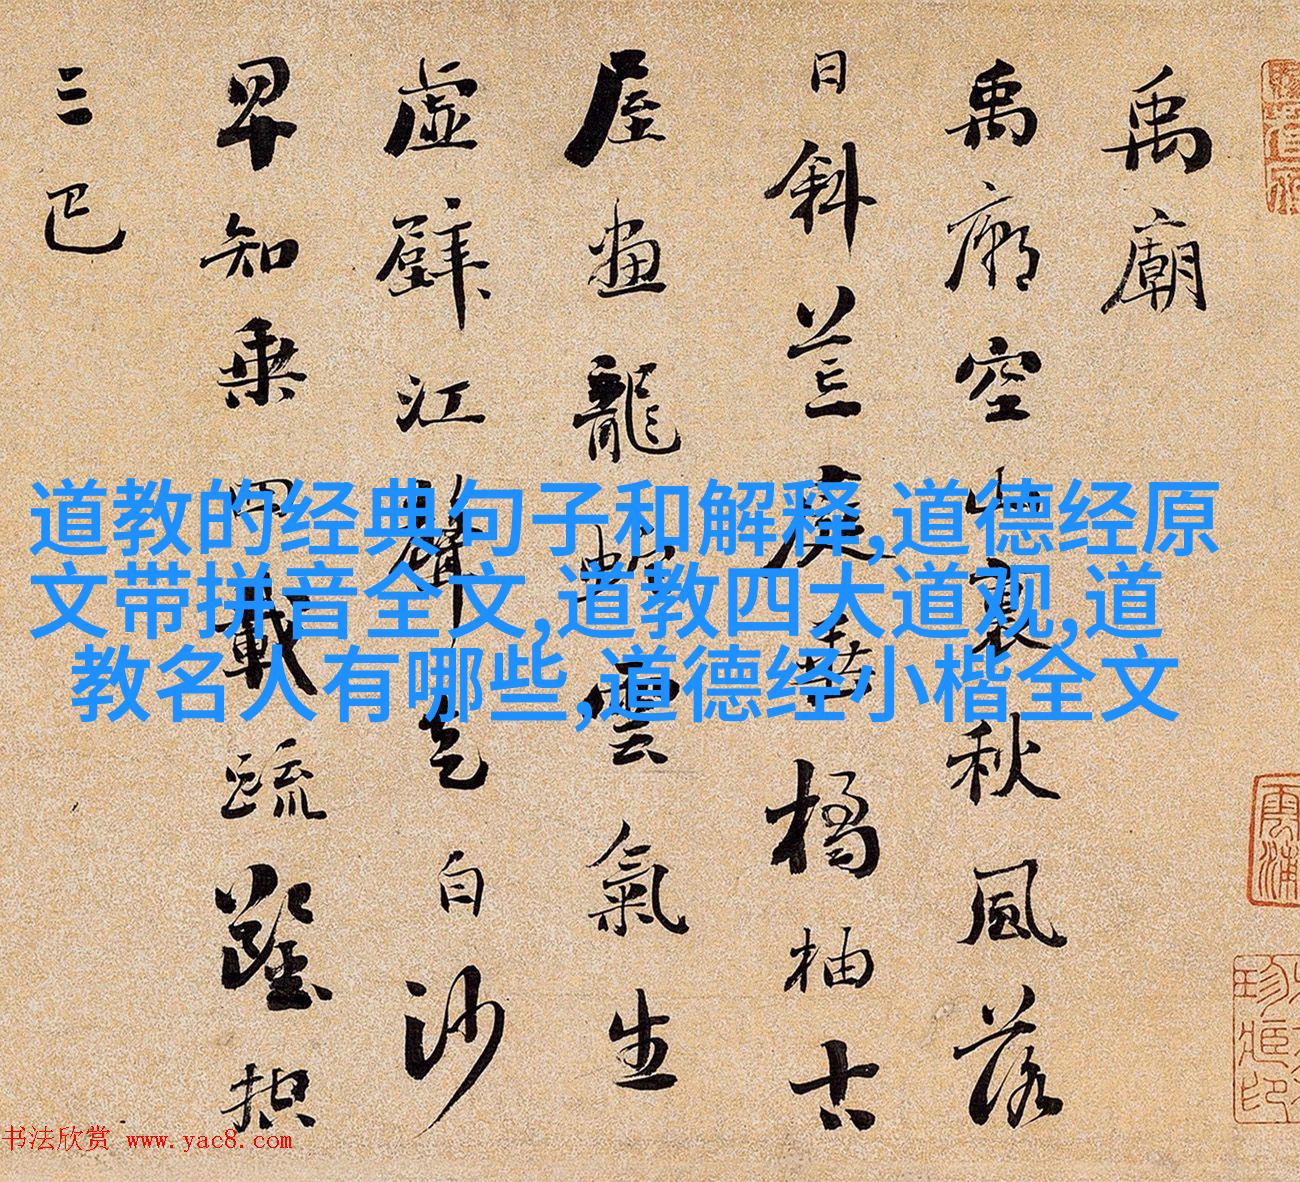 禹廟
禹廟空山裏秋風落
日斜荒庭垂橘柚古
屋畫龍蛇雲氣生
虛壁江聲走白沙
早知乘四載疏鑿控
三巴
道教的经典句子和解释,道德经原
文带拼音全文,道教四大道观,道
教名人有哪些,道德经小楷全文
书法欣赏 www.yac8.com